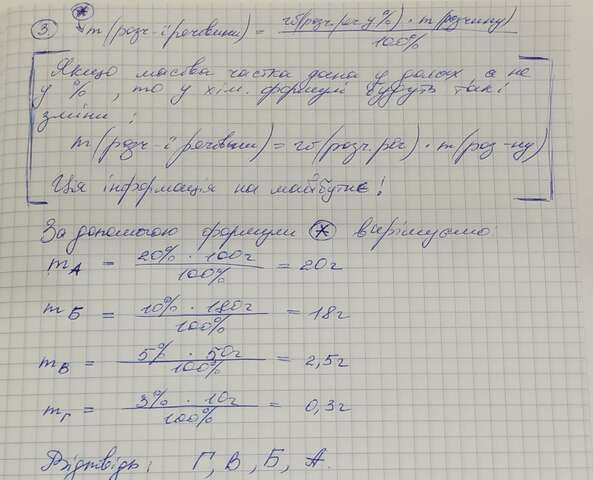 3. * m(розч-ї речовини) = w(розч.реч. у %) · m(розчину) / 100%
Якщо масова частка дана у долях, а не
у %, то у хім. формулі будуть такі
зміни:
m(розч-ї речовини) = w(розч.реч) · m(роз-ну)
Ця інформація на майбутнє!
За допомогою формули * вирішуємо:
mА = 20% · 100г / 100% = 20г
mБ = 10% · 180г / 100% = 18г
mВ = 5% · 50г / 100% = 2,5г
mГ = 3% · 10г / 100% = 0,3г
Відповідь: Г, В, Б, А.